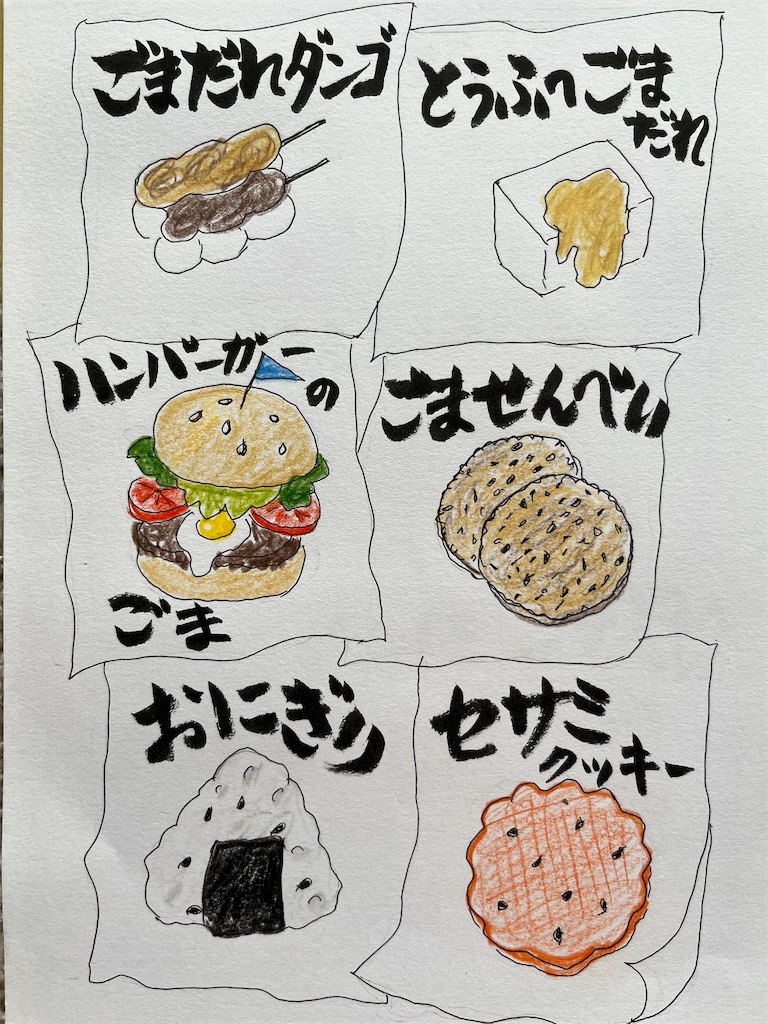 ごまだれダンゴ
とうふのごま
だれ
ハンバーガーの
ごま
ごませんべい
おにぎり
セサミ
クッキー